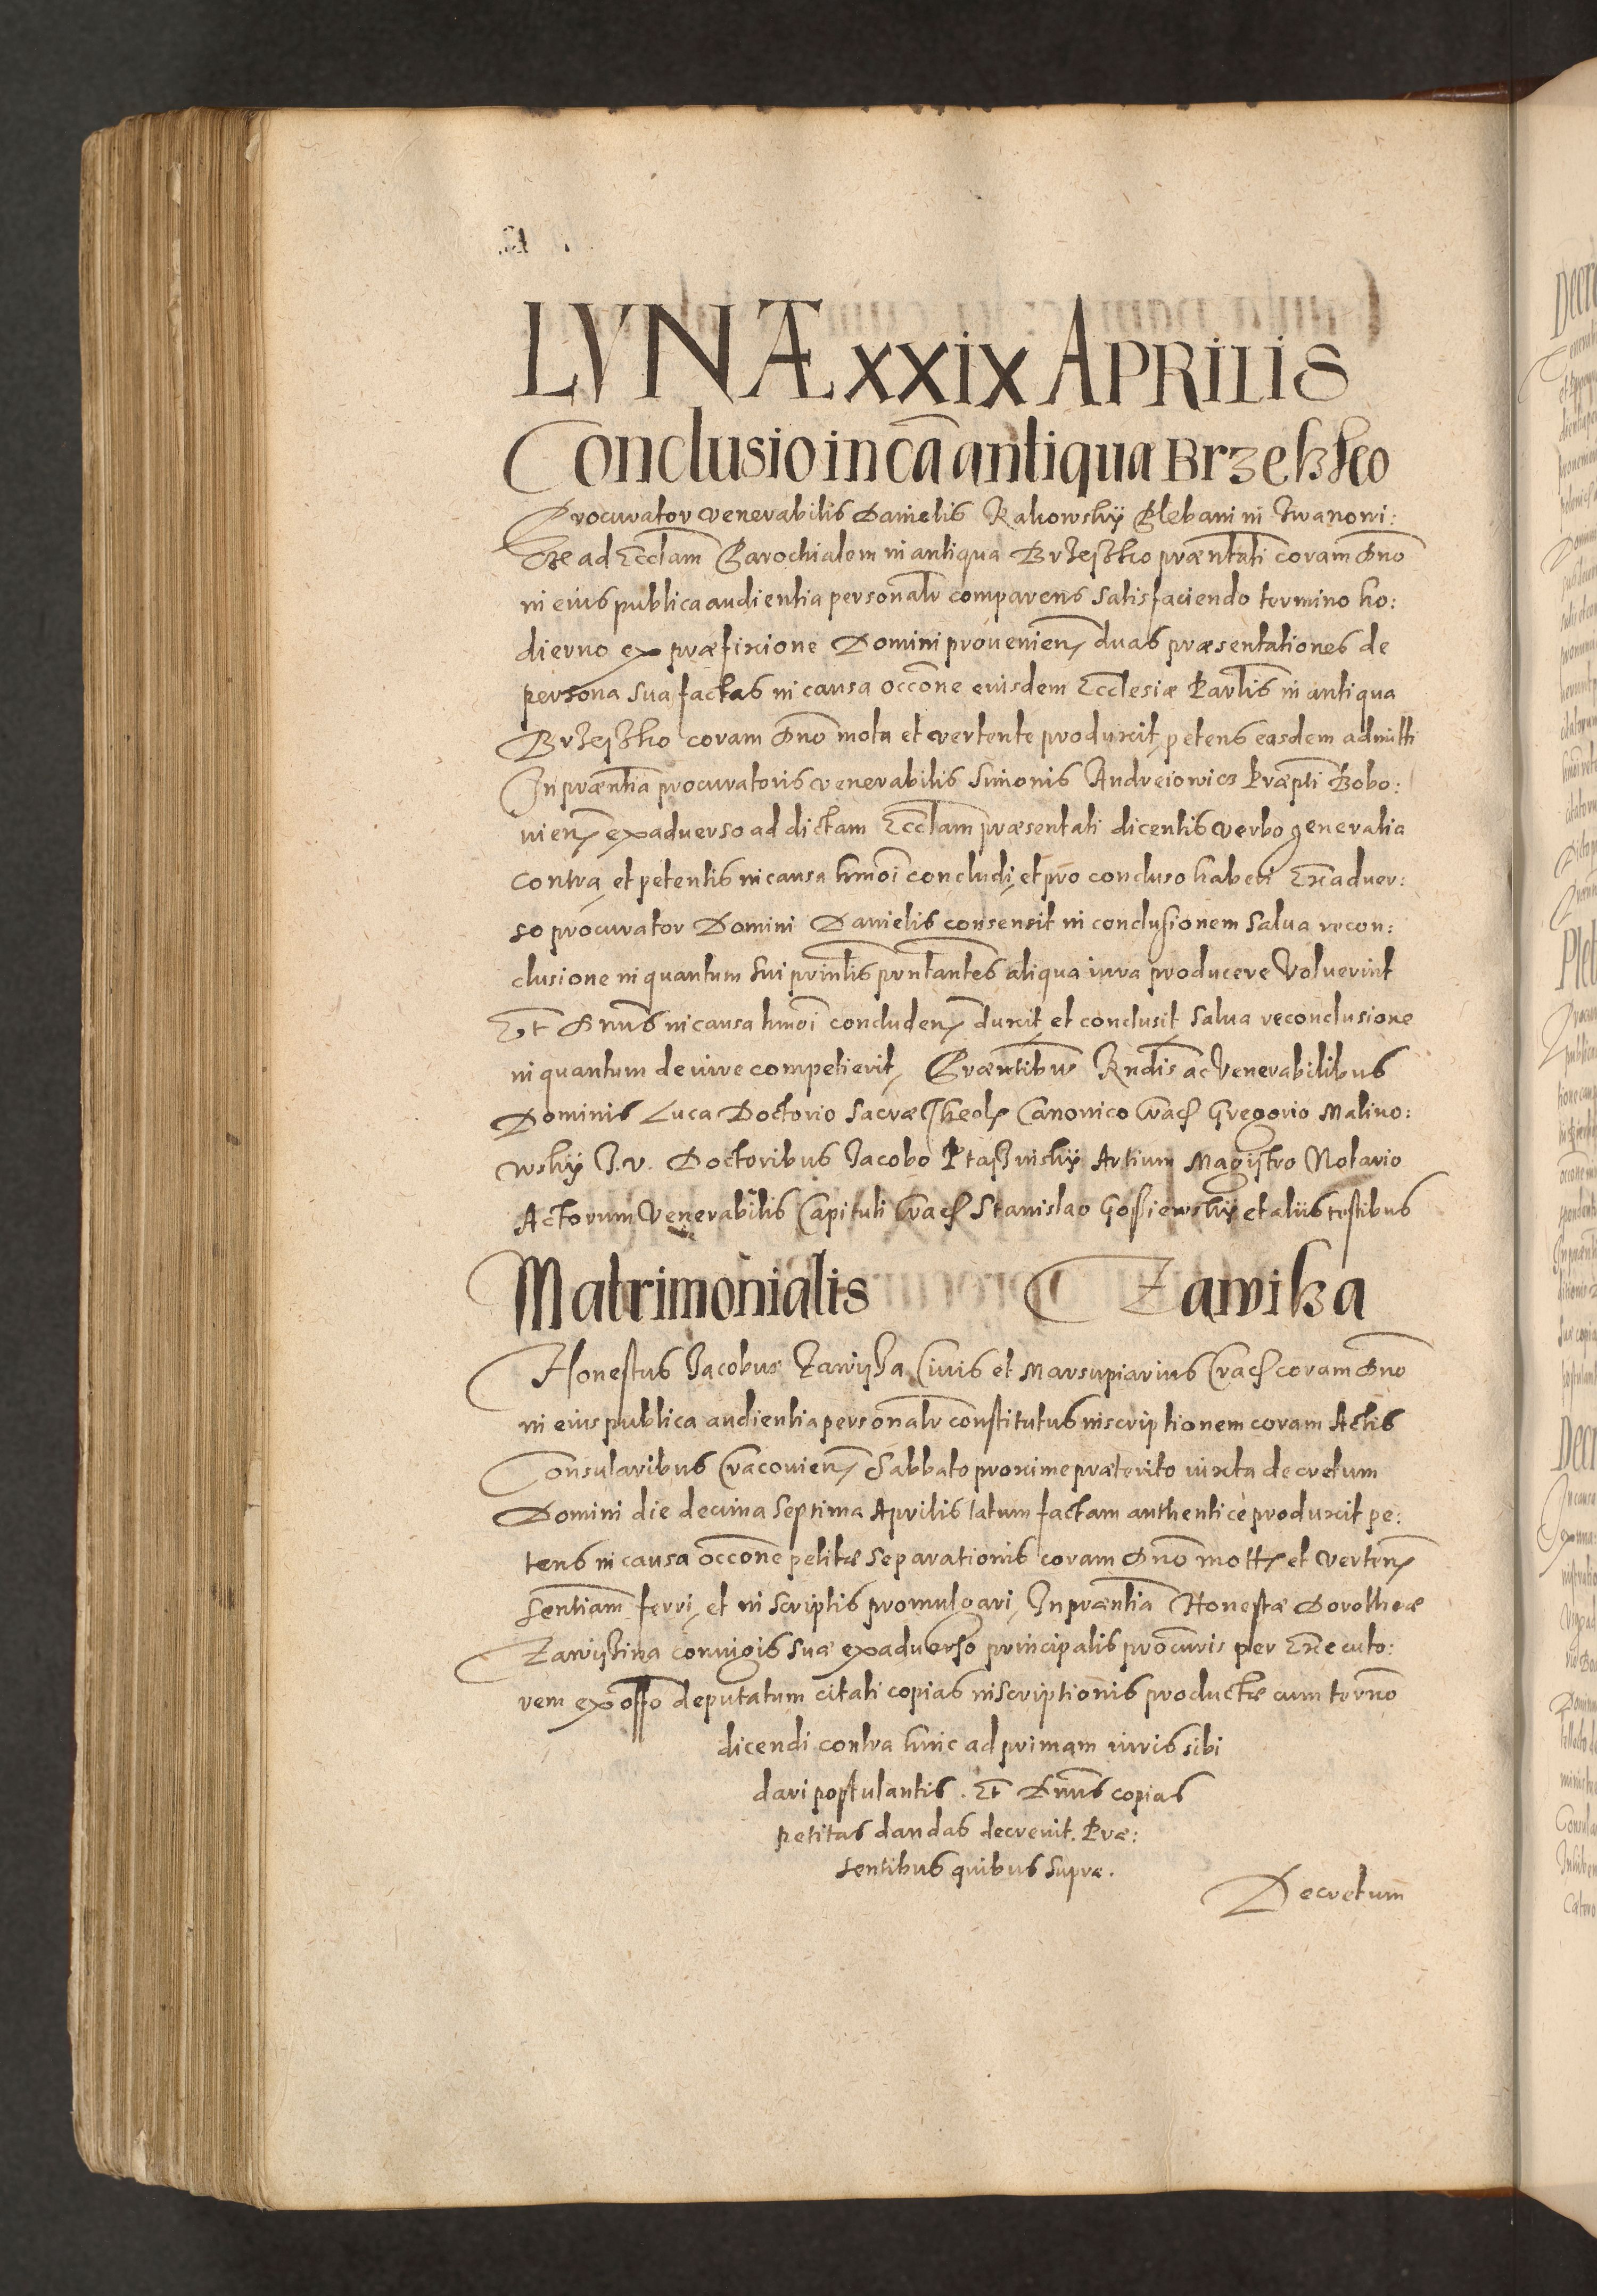 LVNÆ XXIX APRILIS
Conclusio in cā antiqua Brzeßko
Procurator venerabilis Danielis Rakowsky Plebani in Iwanowi:
cze ad Ecclam Parochialem in antiqua Brzeszko præntati coram Dno
in eius publica audientia personalr comparens satisfaciendo termino ho:
dierno ex præfixione Domini provenien duas præsentationes de
persona sua factas in causa occone eiusdem Ecclesiæ Parlis in antiqua
Brzeszko coram Dno mota et vertente produxit petens easdem admitti
In præntia procuratoris venerabilis Simonis Andreiowicz Præpti Bobo:
vien ex adverso ad dictam Ecclam præsentati dicentis verbo generalia
contra et petentis in causa hmoi concludi et pro concluso haberi Ex adver:
so procurator Domini Danielis consensit in conclusionem salva recon:
clusione in quantum sui prinlis prntantes aliqua iura producere voluerint
Et Dnus in causa hmoi concluden duxit et conclusit salva reconclusione
in quantum de iure competierit, Præntibus Rndis ac Venerabilibus
Dominis Luca Doctorio Sacræ Theol Canonico Crac Gregorio Malino:
wsky I.V. Doctoribus Iacobo Ptaßinsky Artium Magistro Notario
Actorum Venerabilis Capituli Crac Stanislao Gossiewsky et aliis testibus
Matrimonialis Zawißa
Honestus Iacobus Zawyßa Civis et Marsupiarius Crac coram Dno
in eius publica audientia personalr constitutus inscriptionem coram Actis
Consularibus Cracovien Sabbato proxime præterito iuxta decretum
Domini die decima septima Aprilis latum factam authentice produxit pe:
tens in causa occone petitæ separationis coram Dno mott et verten
sentiam ferri et in scriptis promulgari, In præntia Honestæ Dorotheæ
Zawyßina coniugis suæ ex adverso principalis procuris per Executo:
rem ex offo deputatum citati copias inscriptionis productæ cum termno
dicendi contra hinc ad primam iuris sibi
dari postulantis. Et Dnus copias
petitas dandas decrevit. Præ:
sentibus quibus supra.
Decretum